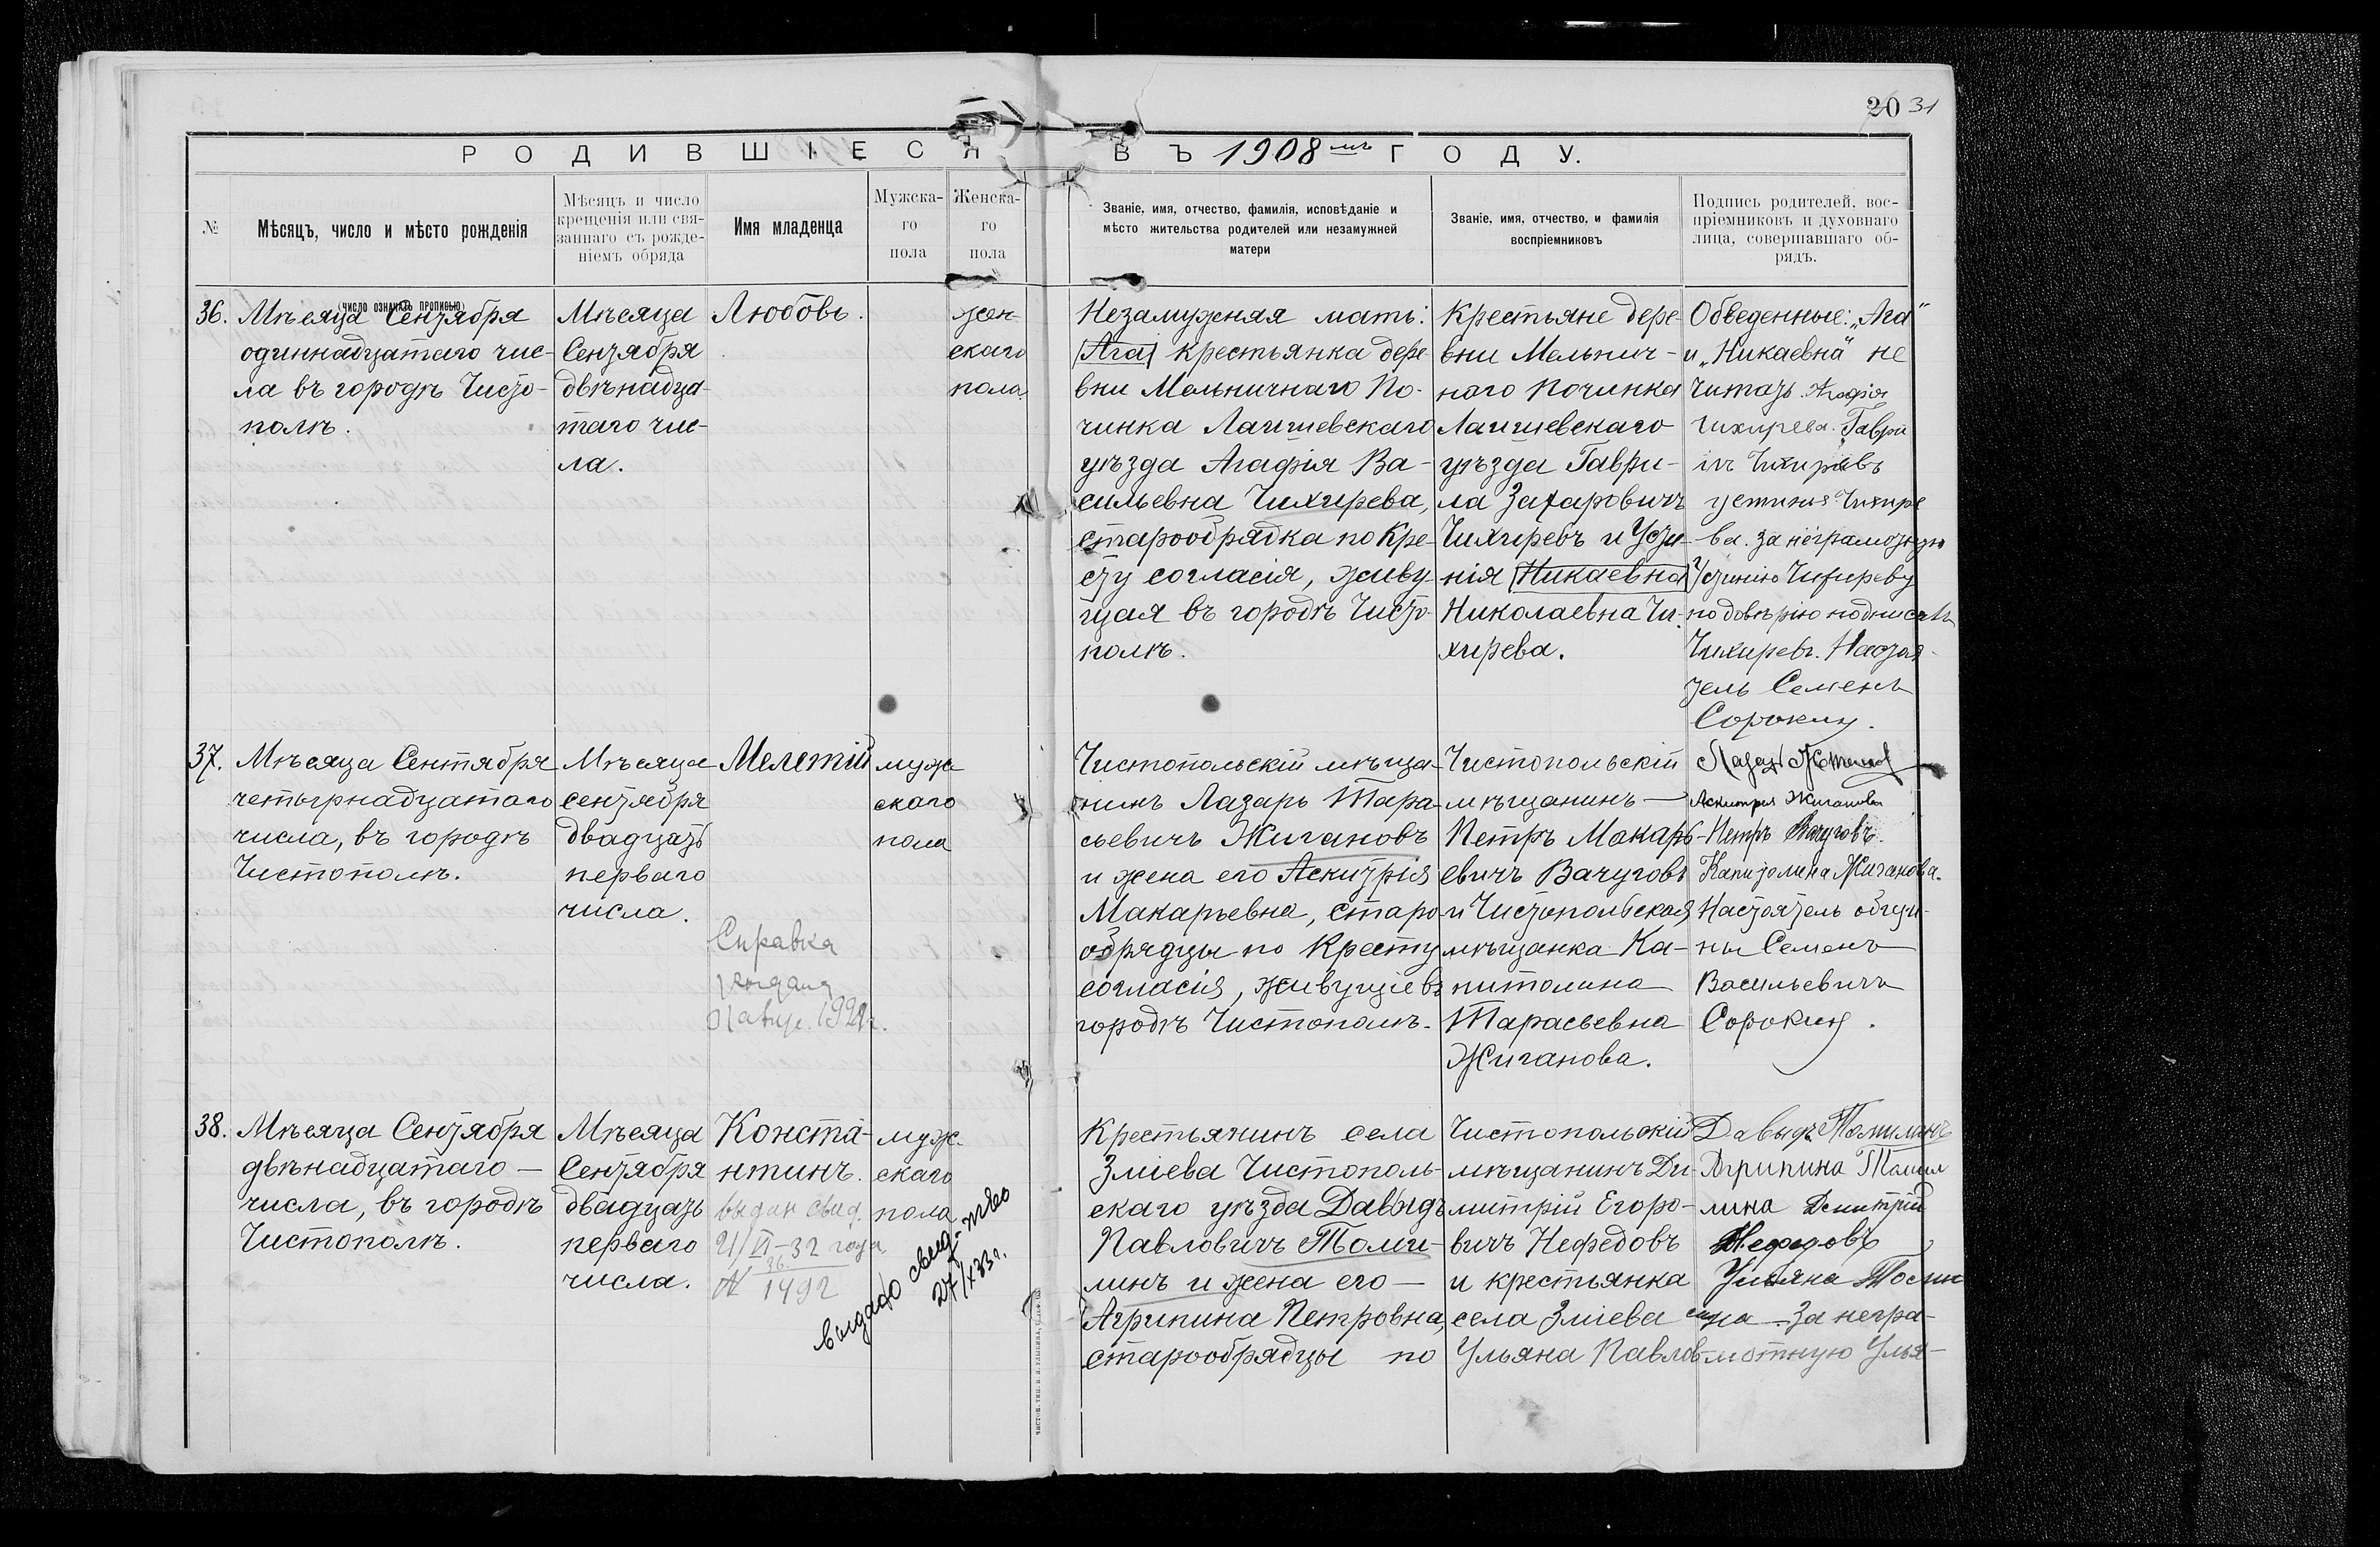 20 31
РОДИВШІЕСЯ ВЪ 1908мъ ГОДУ.
№
Мѣсяцъ, число и мѣсто рожденія
(число означать прописью)
Мѣсяцъ и число
крещенія или свя-
заннаго съ рожде-
ніемъ обряда
Имя младенца
Мужска-
го
пола
Женска-
го
пола
Званіе, имя, отчество, фамилія, исповѣданіе и
мѣсто жительства родителей или незамужней
матери
Званіе, имя, отчество, и фамилія
воспріемниковъ
Подпись родителей, вос-
пріемниковъ и духовнаго
лица, совершавшаго об-
рядъ.
36.
Мѣсяца Сентября
одиннадцатаго чис-
ла въ городѣ Чисто-
полѣ.
Мѣсяца
Сентября
двѣнадца-
таго чис-
ла.
Любовь.
жен-
скаго
пола.
Незамужняя мать:
Ага крестьянка дере-
вни Мельничнаго По-
чинка Лаишевскаго
уѣзда Агафія Ва-
сильевна Чихирева,
старообрядка по Кре-
сту согласія, живу-
щая въ городѣ Чисто-
полѣ.
Крестьяне дере-
вни Мельнич-
ного Починка
Лаишевскаго
уѣзда Гаври-
ла Захаровичъ
Чихиревъ и Усти-
нія Никаевна
Николаевна Чи-
хирева.
Обведенные: „Ага"
и „Никаевна" не
читать. Агафія
Чихирева. Гаври
ілъ Чихиревъ
устинья Чихире
ва. за неграмотную
Устинію Чихиреву
по довѣрію подписалъ
Чихиревъ. Настоя-
тель Семенъ
Сорокинъ.
37.
Мѣсяца Сентября
четырнадцатаго
числа, въ городѣ
Чистополѣ.
Мѣсяца
сентября
двадцать
перваго
числа.
Мелетій
Справка
выдана
муж-
скаго
пола
Чистопольскій мѣща-
нинъ Лазарь Тара-
сьевичъ Жигановъ
и жена его Аскитрія
Макарьевна, старо-
обрядцы по Кресту
согласія, живущіе въ
городѣ Чистополѣ.
Чистопольскій
мѣщанинъ —
Петръ Макарь-
евичъ Вачуговъ
и Чистопольская
мѣщанка Ка-
питолина
Тарасьевна
Жиганова.
Лазарь
Аскитрия Жиганова
Петръ Вачуговъ.
Капитолина Жиганова.
Настоятель общи-
ны Семенъ
Васильевичъ
Сорокинъ.
38.
Мѣсяца Сентября
двѣнадцатаго —
числа, въ городѣ
Чистополѣ.
Мѣсяца
Сентября
двадцать
перваго
числа.
Конста-
нтинъ.
выдан свид.
21/VI-32 года
№ 1492
муж-
скаго
пола
выдано свид-тво
27/X 33 г.
Крестьянинъ села
Зміева Чистополь-
скаго уѣзда Давыдъ
Павловичъ Томи-
линъ и жена его —
Агрипина Петровна,
старообрядцы по
Чистопольскій
мѣщанинъ Ди-
митрій Егоро-
вичъ Нефедовъ
и крестьянка
села Зміева
Ульяна Павлов-
Давыдъ Томилинъ
Агрипина Томил
лина Дмитрій
Нефедовъ
Ульяна
За негра-
мотную Улья-